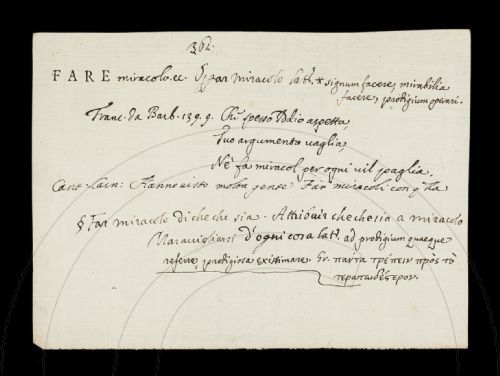 362.
FARE miracolo. ec. Far miracolo lat. * signum facere, mirabilia
facere, prodigium operari.
Franc. da Barb. 139. 9. Chi spesso Iddio aspetta,
Suo argumento vaglia,
Nè fa miracol per ogni vil paglia,
Cant. Hanno visto molta gente Far miracoli con
§ Far miracolo di che che sia. Attribuir che che sia a miracolo
Maravigliarsi d'ogni cosa lat. ad prodigium quaeque
referre, prodigiosa existimare. Gr. πάντα τρέπειν πρὸς τὸ
τερατωδέστερον.